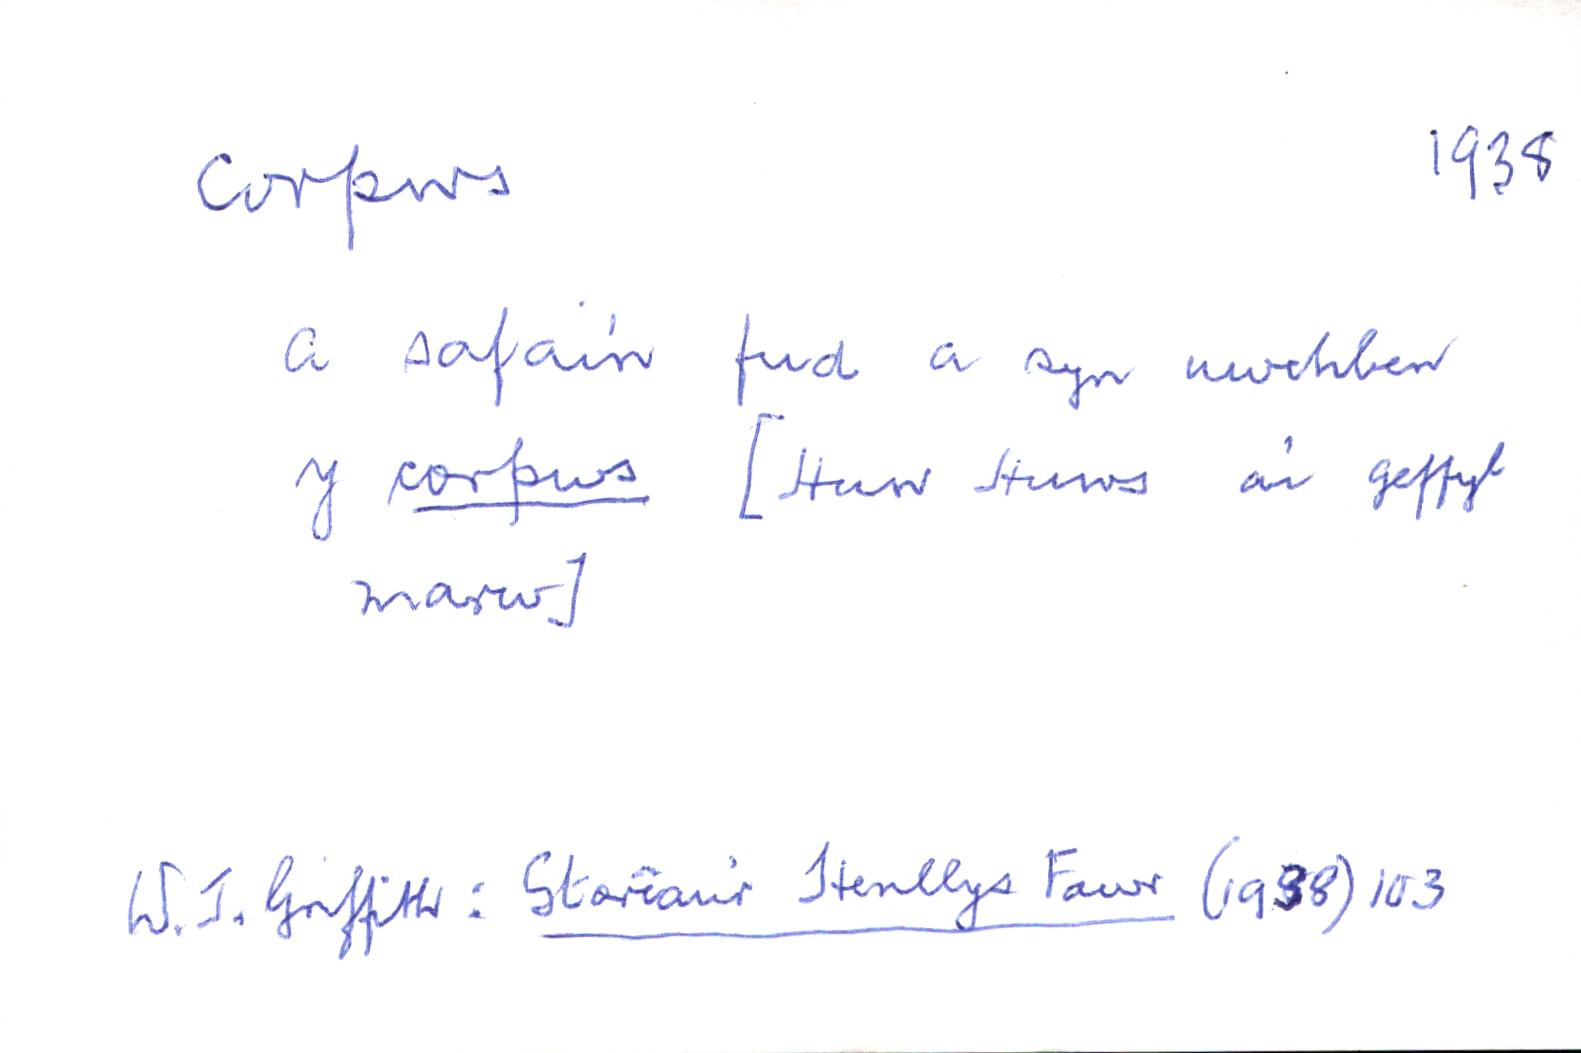 corpws 1938
a safai'n fud a syn uwchben
y corpws [Huw Huws a'i geffyl
marw]
W. J. Griffith: Storïau'r Henllys Fawr (1938) 103